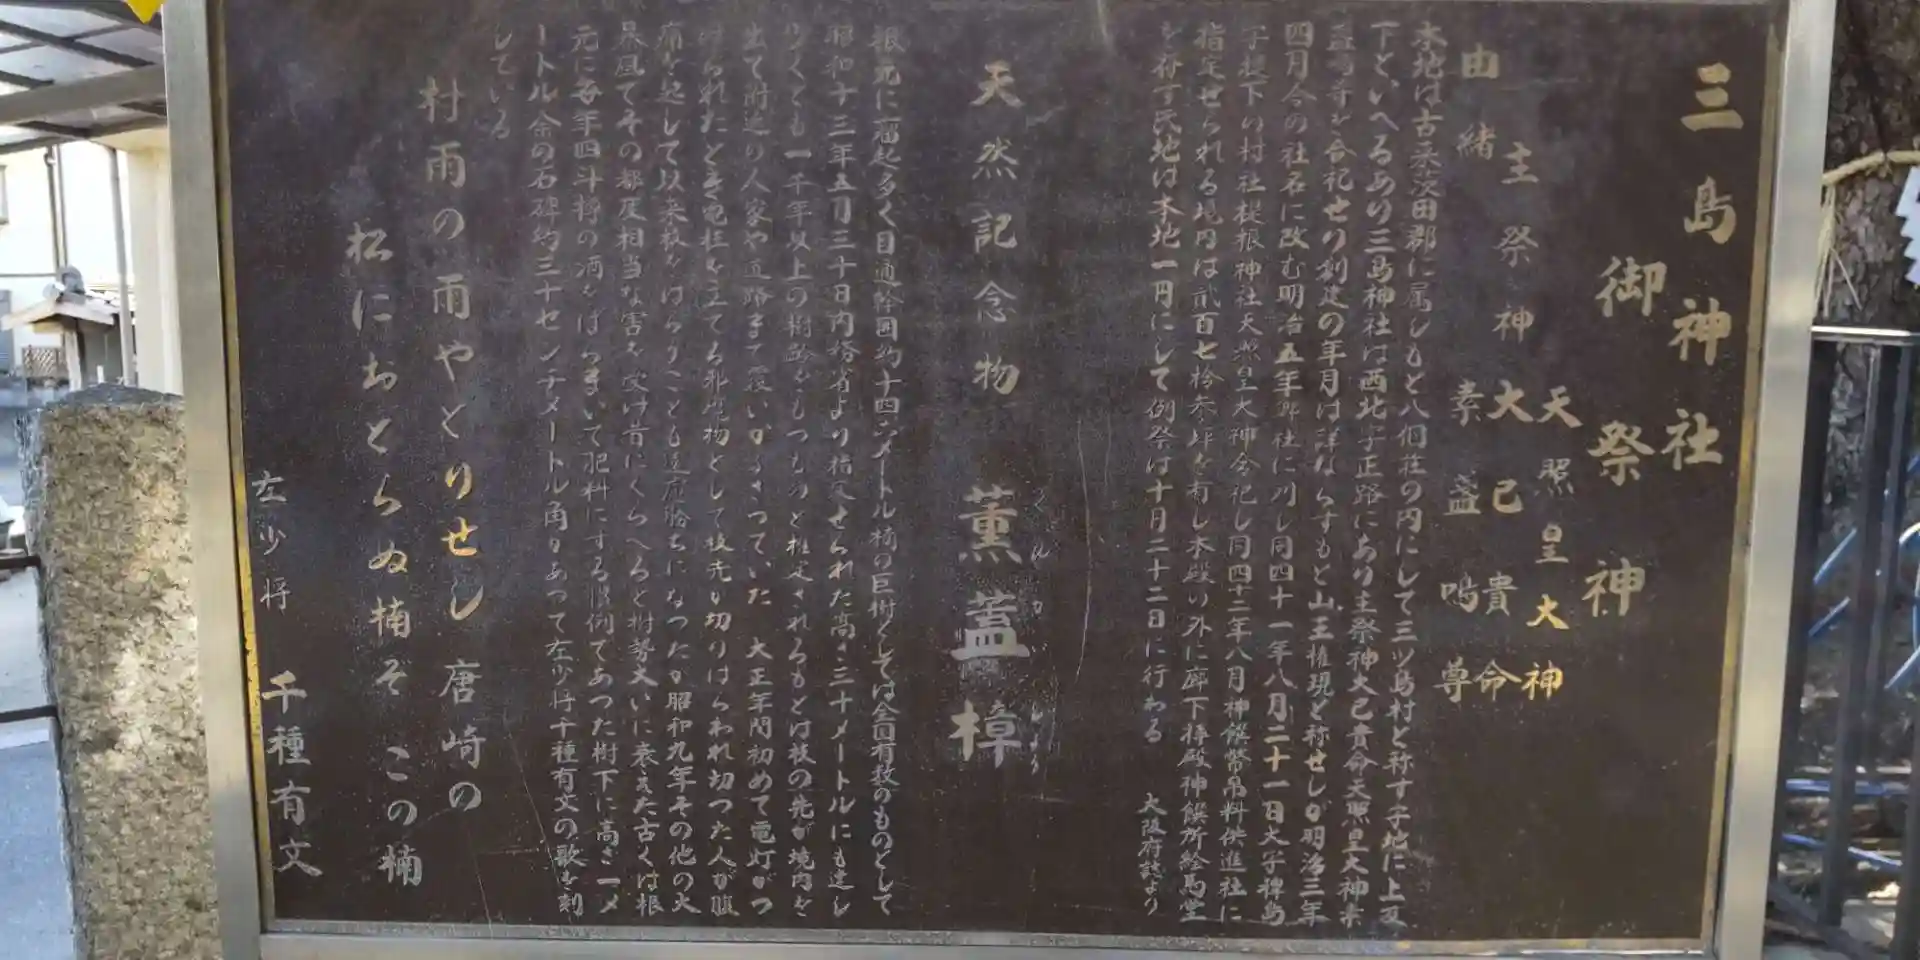 三島神社
御祭神
天照皇大神
主祭神 大己貴命
素盞嗚尊
由緒
本地は古来茨田郡に属しもと八個荘の内にして三ツ島村と称す字地に上之
下といへるあり三島神社は西北字正路にあり主祭神大己貴命天照皇大神素
盞嗚尊を合祀せり創建の年月は詳ならずもと山王権現と称せしが明治三年
四月今の社名に改む明治五年郷社に列し同四十一年八月二十一日大字稗島
字堤下の村社堤根神社天照皇大神合祀し同四十二年八月神饌幣帛料供進社に
指定せられる境内は弐百七拾参坪を有し本殿の外に廊下拝殿神饌所絵馬堂
を存す氏地は本地一円にして例祭は十月二十二日に行わる 大阪府誌より
天然記念物 薫蓋樟
くんがいしょう
根元に瘤起多く目通幹囲約十四メートル楠の巨樹としては全国有数のものとして
昭和十三年五月三十日内務省より指定せられた高さ三十メートルにも達し
少くとも一千年以上の樹齢をもつものと推定されるもとは枝の先が境内を
出て附近の人家や道路まで覆いかぶさつていた 大正年間初めて電灯がつ
けられたとき電柱を立てる邪魔物として枝先が切りはらわれ切つた人が腹
痛を起して以来枝をはらうことも遠慮勝ちになつたが昭和九年その他の大
暴風でその都度相当な害を受け昔にくらべると樹勢大いに衰えた古くは根
元に毎年四斗樽の酒をばらまいて肥料にする慣例であつた樹下に高さ一メ
ートル余の石碑約三十センチメートル角があつて左少将千種有文の歌を刻
している
村雨の雨やどりせし 唐崎の
松におとらぬ楠ぞ この楠
左少将 千種有文